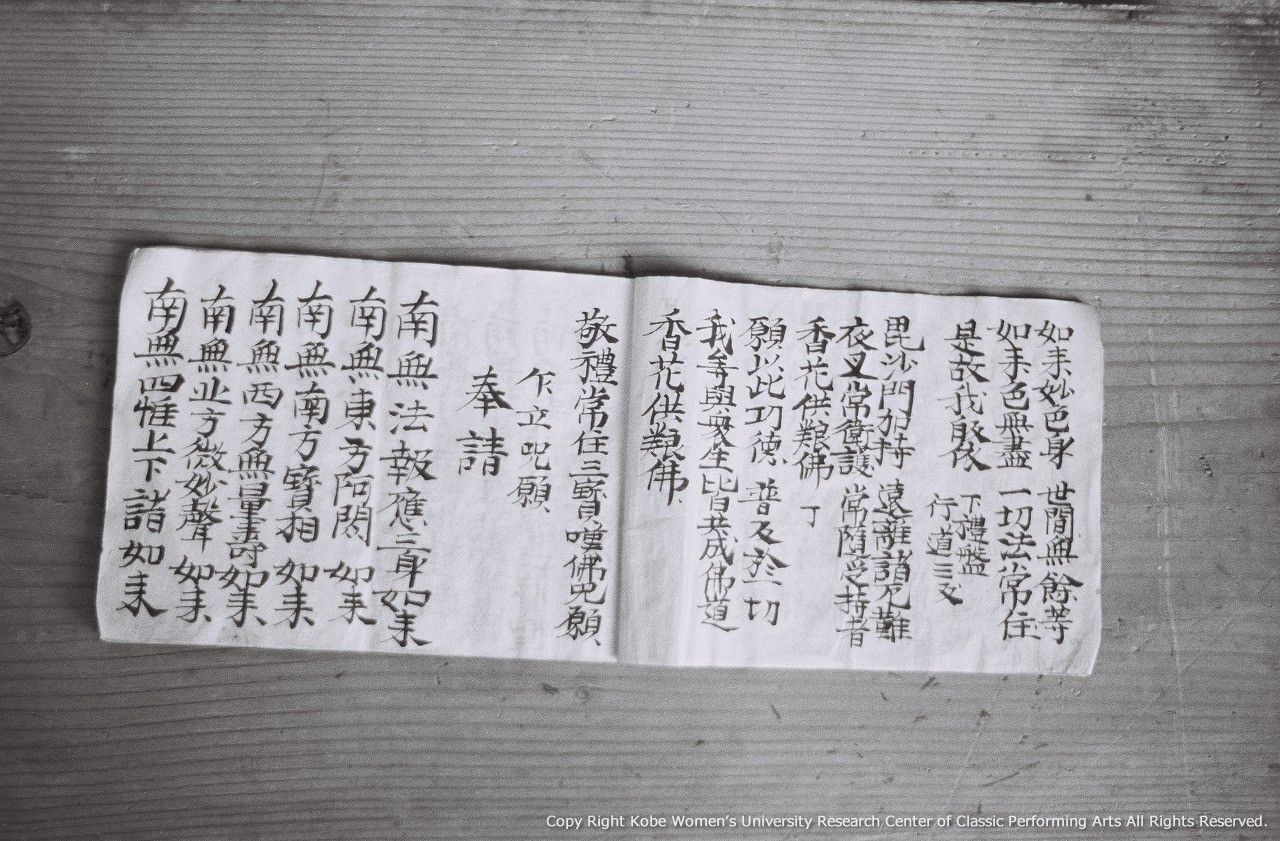 如来妙色身　世間無餘等
如来色無盡　一切法常住
是故我敬依
下禮盤
行道三反
毘沙門加持　遠離諸厄難
衣叉常衛護　常随受持者
香花供粮佛　丁
願以此功徳　普及於一切
我等與衆生皆共成佛道
香花供粮佛
敬禮常住三寳嘆佛咒願
乍立咒願
奉請
南無法報應三身如来
南無東方阿閦如来
南無南方寳相如来
南無西方無量壽如来
南無北方微妙聲如来
南無四惟上下諸如来
Copy Right Kobe Women's University Research Center of Classic Performing Arts All Rights Reserved.